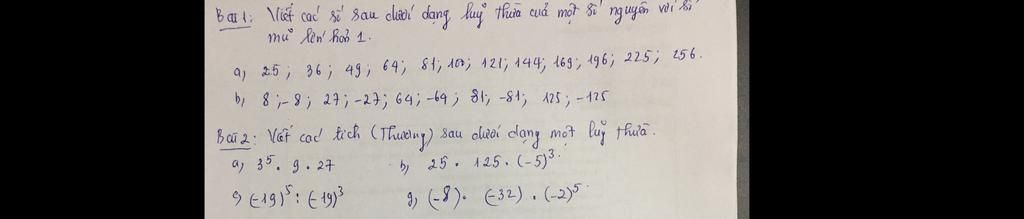 Bài 1: Viết các số sau dưới dạng luỹ thừa của một số nguyên với số
mũ lớn hơn 1.
a, 25 ; 36 ; 49 ; 64 ; 81 ; 100 ; 121 ; 144 ; 169 ; 196 ; 225 ; 256.
b, 8 ; -8 ; 27 ; -27 ; 64 ; -64 ; 81 ; -81 ; 125 ; -125
Bài 2: Viết các tích (Thương) sau dưới dạng một luỹ thừa.
a, 3⁵ . 9 . 27 b, 25 . 125 . (-5)³.
c, (-19)⁵ : (-19)³ g, (-8) . (-32) . (-2)⁵.